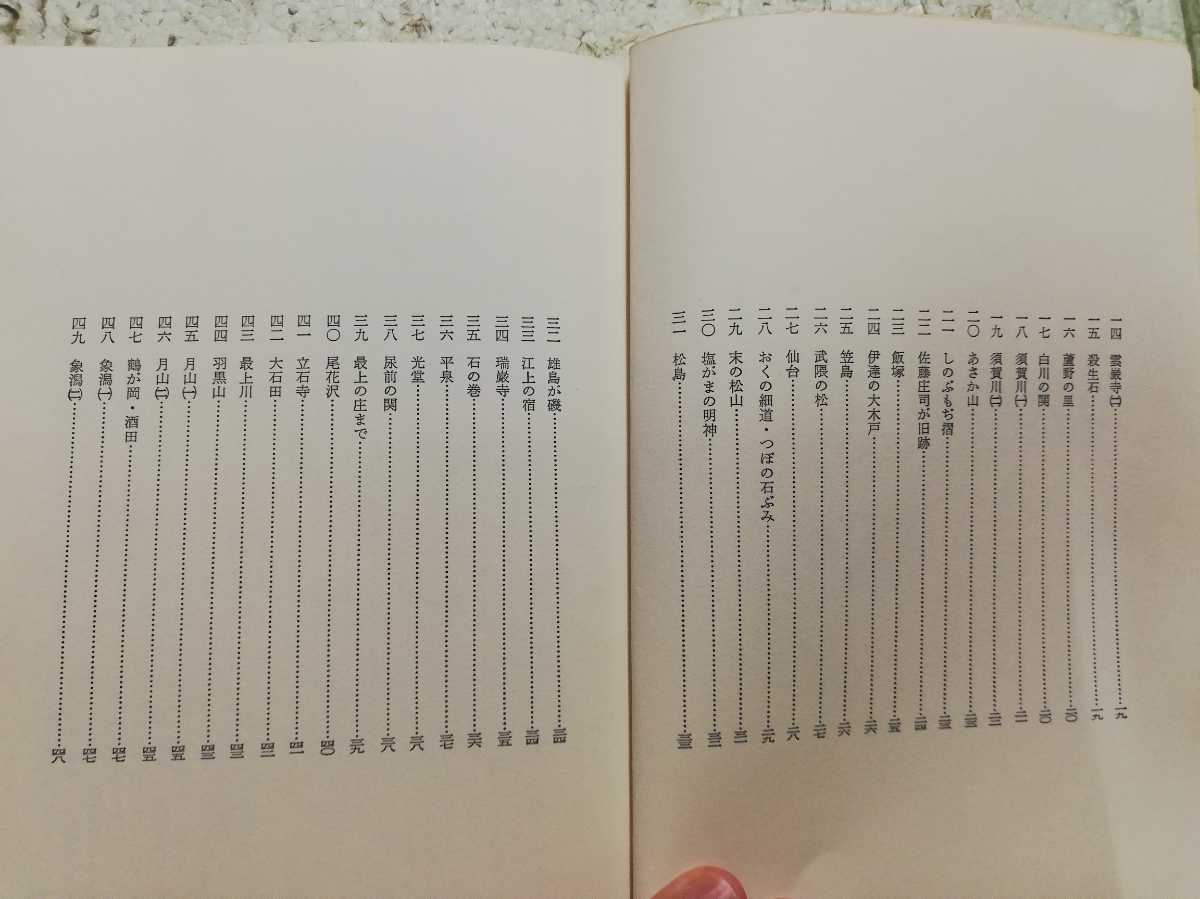 一四　雲巌寺㈡……一九
一五　殺生石……一九
一六　蘆野の里……二〇
一七　白川の関……二〇
一八　須賀川㈠……二一
一九　須賀川㈡……二二
二〇　あさか山……二三
二一　しのぶもぢ摺……二三
二二　佐藤庄司が旧跡……二四
二三　飯塚……二五
二四　伊達の大木戸……二六
二五　笠島……二六
二六　武隈の松……二七
二七　仙台……二八
二八　おくの細道・つぼの石ぶみ……二九
二九　末の松山……三一
三〇　塩がまの明神……三二
三一　松島……三三
三二　雄島が磯……三四
三三　江上の宿……三四
三四　瑞巌寺……三五
三五　石の巻……三六
三六　平泉……三七
三七　光堂……三八
三八　尿前の関……三八
三九　最上の庄まで……三九
四〇　尾花沢……四〇
四一　立石寺……四一
四二　大石田……四二
四三　最上川……四三
四四　羽黒山……四三
四五　月山㈠……四五
四六　月山㈡……四五
四七　鶴が岡・酒田……四七
四八　象潟㈠……四七
四九　象潟㈡……四八